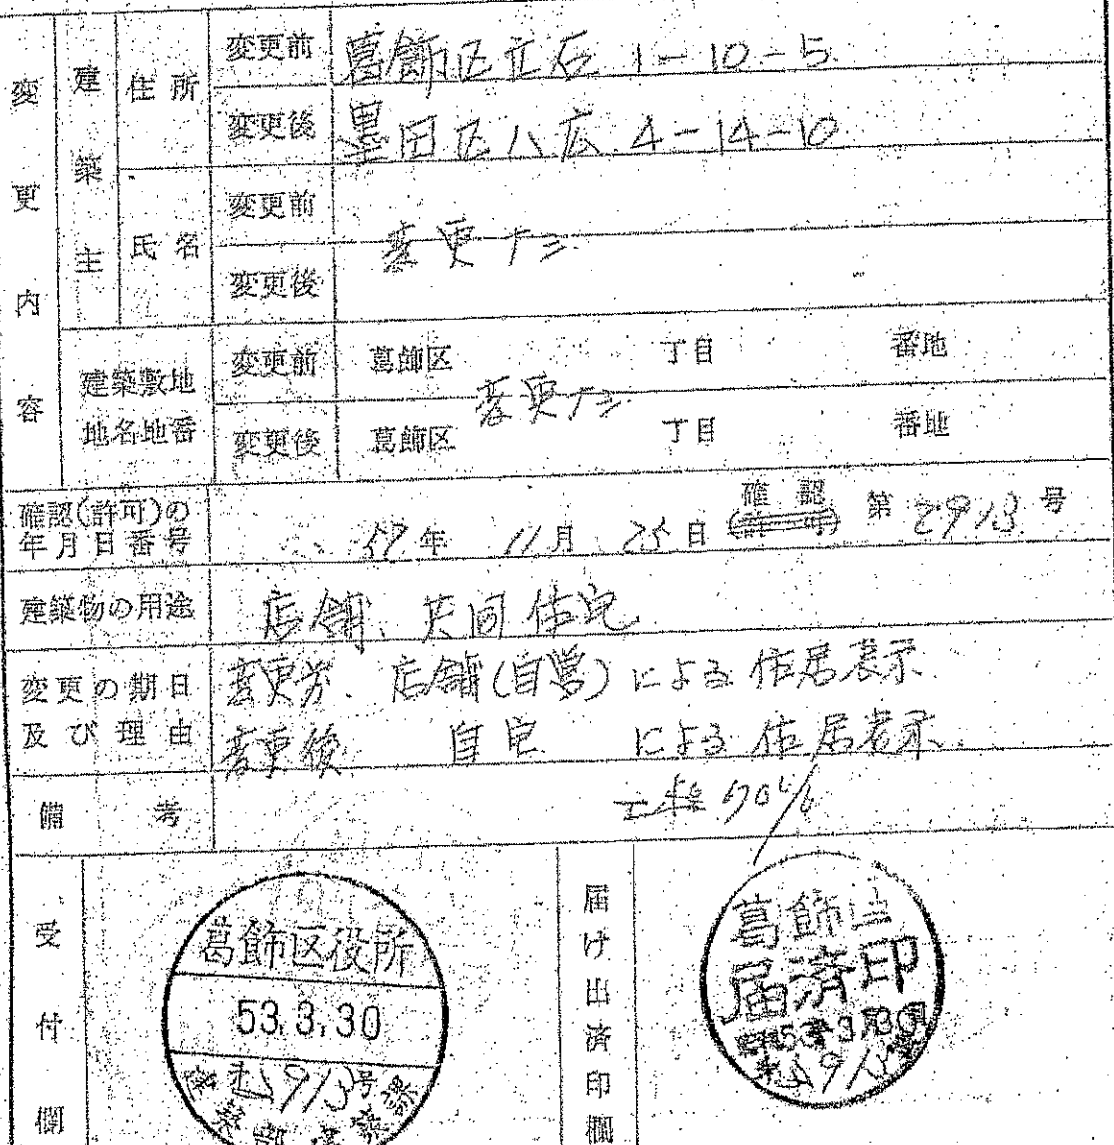 変更内容
建築主
住所
変更前 葛飾区立石 1-10-5
変更後 墨田区八広 4-14-10
氏名
変更前
変更ナシ
変更後
建築敷地
地名地番
変更前 葛飾区 丁目 番地
変更ナシ
変更後 葛飾区 丁目 番地
確認(許可)の
年月日番号
年 11月 25日 確認(許可) 第 2913 号
建築物の用途 店舗、共同住宅
変更の期日
及び理由
変更前 店舗(自営)による住居表示
変更後 自宅 による住居表示
備考
受付欄
葛飾区役所
53.3.30
2913号
建築部建築課
届け出済印欄
葛飾区
届済印
53年3月30日
2913号